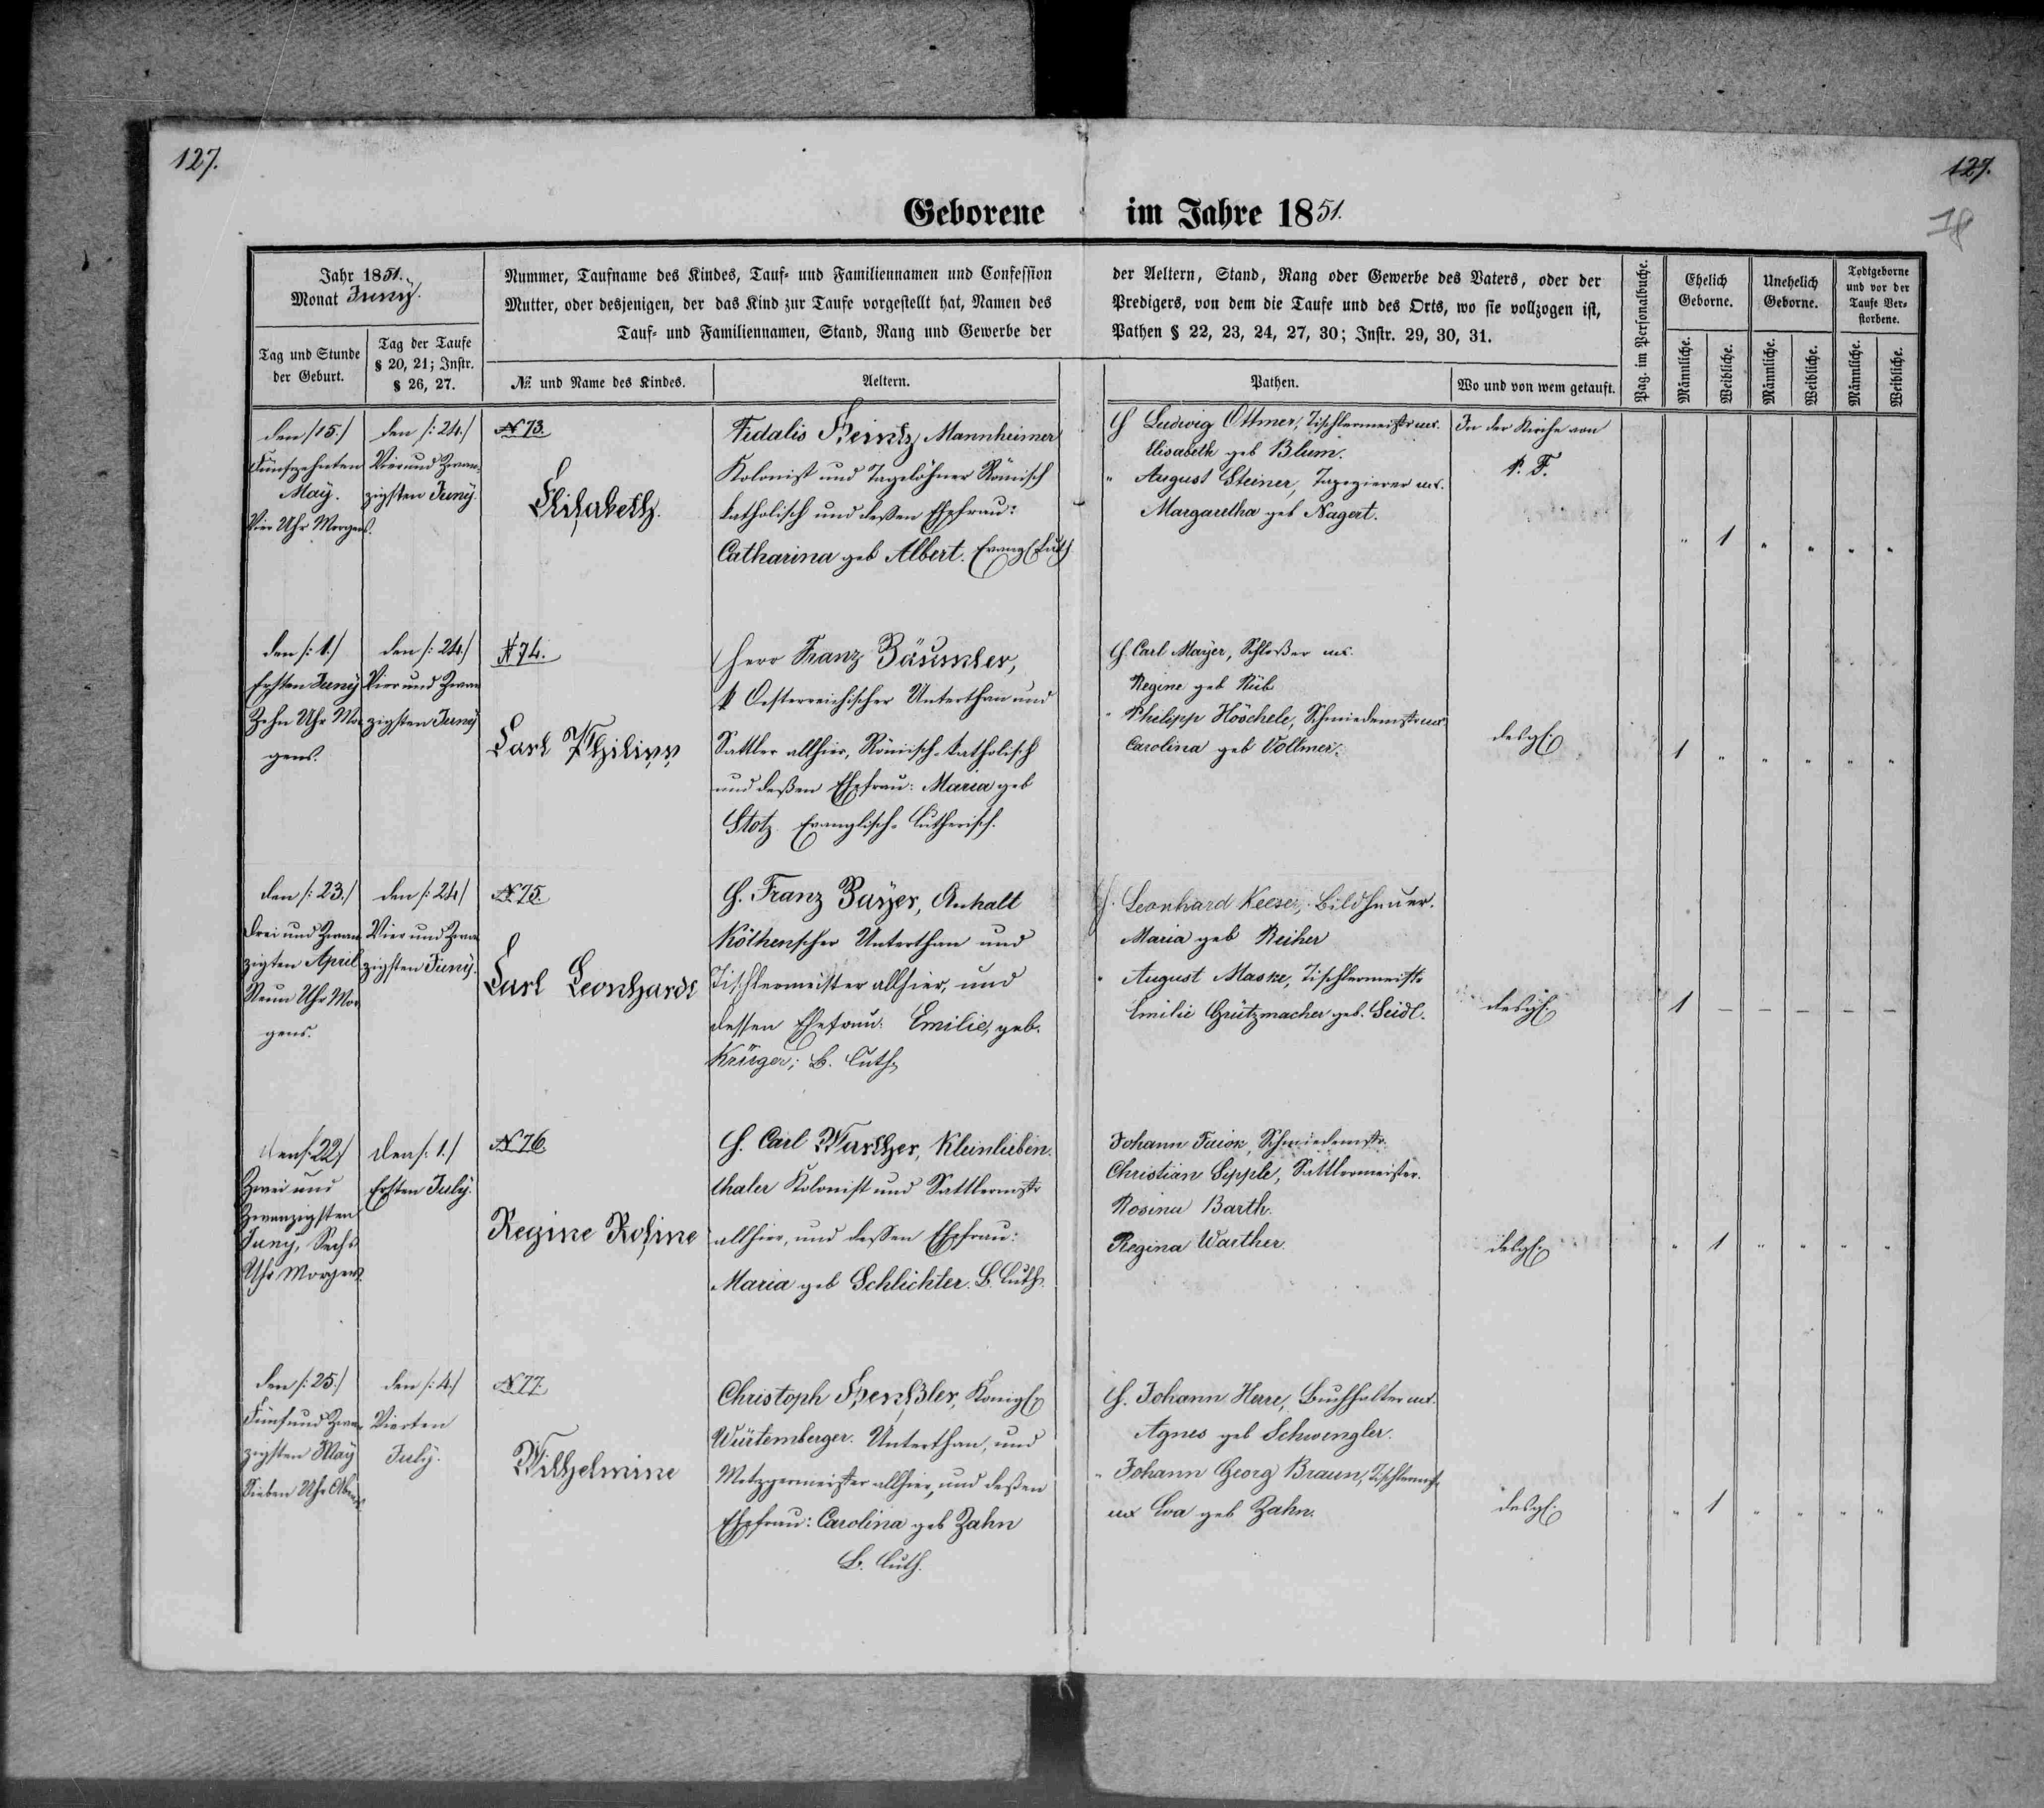 127.
127.
18
Geborene im Jahre 1851.
Jahr 1851.
Monat Juny.
Tag und Stunde der Geburt.
Tag der Taufe § 20, 21; Instr. § 26, 27.
Nummer, Taufname des Kindes, Tauf- und Familiennamen und Confession der Aeltern, Stand, Rang oder Gewerbe des Vaters, oder der
Mutter, oder desjenigen, der das Kind zur Taufe vorgestellt hat, Namen des Predigers, von dem die Taufe und des Orts, wo sie vollzogen ist,
Tauf- und Familiennamen, Stand, Rang und Gewerbe der Pathen § 22, 23, 24, 27, 30; Instr. 29, 30, 31.
№ und Name des Kindes.
Aeltern.
Pathen.
Wo und von wem getauft.
Pag. im Personalbuche.
Ehelich Geborne.
Unehelich Geborne.
Todtgeborne und vor der Taufe Verstorbene.
Männliche.
Weibliche.
Männliche.
Weibliche.
Männliche.
Weibliche.
den /15./
Fünfzehnten
May.
Vier Uhr Morgens.
den /: 24./
Vier und Zwan-
zigsten Juny.
N 73.
Elisabeth.
Fidalis Heintz, Mannheimer
Kolonist und Tagelöhner Römisch
katholisch und deßen Ehefrau:
Catharina geb Albert. Evangl Luth
H Ludwig Ottmer, Tischlermeistr ux.
Elisabeth geb Blum.
" August Steiner, Tapezierer ux.
Margaretha geb Nagert.
In der Kirche von
P. F.
" 1 " " " "
den /: 1./
Ersten Juny
Zehn Uhr Mor-
gens.
den /: 24./
Vier und Zwan
zigsten Juny
N 74.
Carl Philipp
Herr Franz Bäumler,
k Oesterreichischer Unterthan und
Sattler allhier, Römisch-katholisch
und deßen Ehefrau: Maria geb
Stotz. Evanglisch-Lutherisch.
H. Carl Mayer, Schloßer ux.
Regine geb Rüb
" Philipp Höschele, Schmiedemstr ux
Carolina geb Vollmer.
desgl.
1 " " " " "
den /: 23./
Drei und Zwan
zigten April
Neun Uhr Mor
gens.
den /: 24/
Vier und Zwan
zigsten Juny.
N 75.
Carl Leonhardt
H. Franz Bayer, Anhalt
Köthenscher Unterthan und
Tischlermeister allhier, und
dessen Ehefrau: Emilie, geb.
Krüger; B. Luth.
H. Leonhard Keeser, Bildhauer.
Maria geb Reiher
" August Maske, Tischlermeistr
Emilie Grützmacher geb. Seidl.
desgl.
1 – – – – –
den /: 22/
Zwei und
Zwanzigsten
Juny, Sechs
Uhr Morgens
den /: 1./
Ersten July.
N 76
Regine Rosine
H. Carl Warther, Kleinlieben-
thaler Kolonist und Sattlermstr
allhier, und deßen Ehefrau:
Maria geb Schlichter. B. Luth.
Christian Sipple, Sattlermeister.
Rosina Barth.
Regina Warther.
desgl.
" 1 " " " "
den /: 25./
Fünf und Zwan
zigsten May
Sieben Uhr Abends
den /: 4./
Vierten
July.
N 77.
Wilhelmine
Christoph Henßler, Königl
Würtemberger. Unterthan, und
Metzgermeister allhier, und deßen
Ehefrau: Carolina geb Zahn
B. Luth.
H. Johann Herre, Buchhalter ux.
Agnes geb Schwengler.
" Johann Georg Braun, Tischlermstr
ux Eva geb Zahn.
desgl.
" 1 " " " "